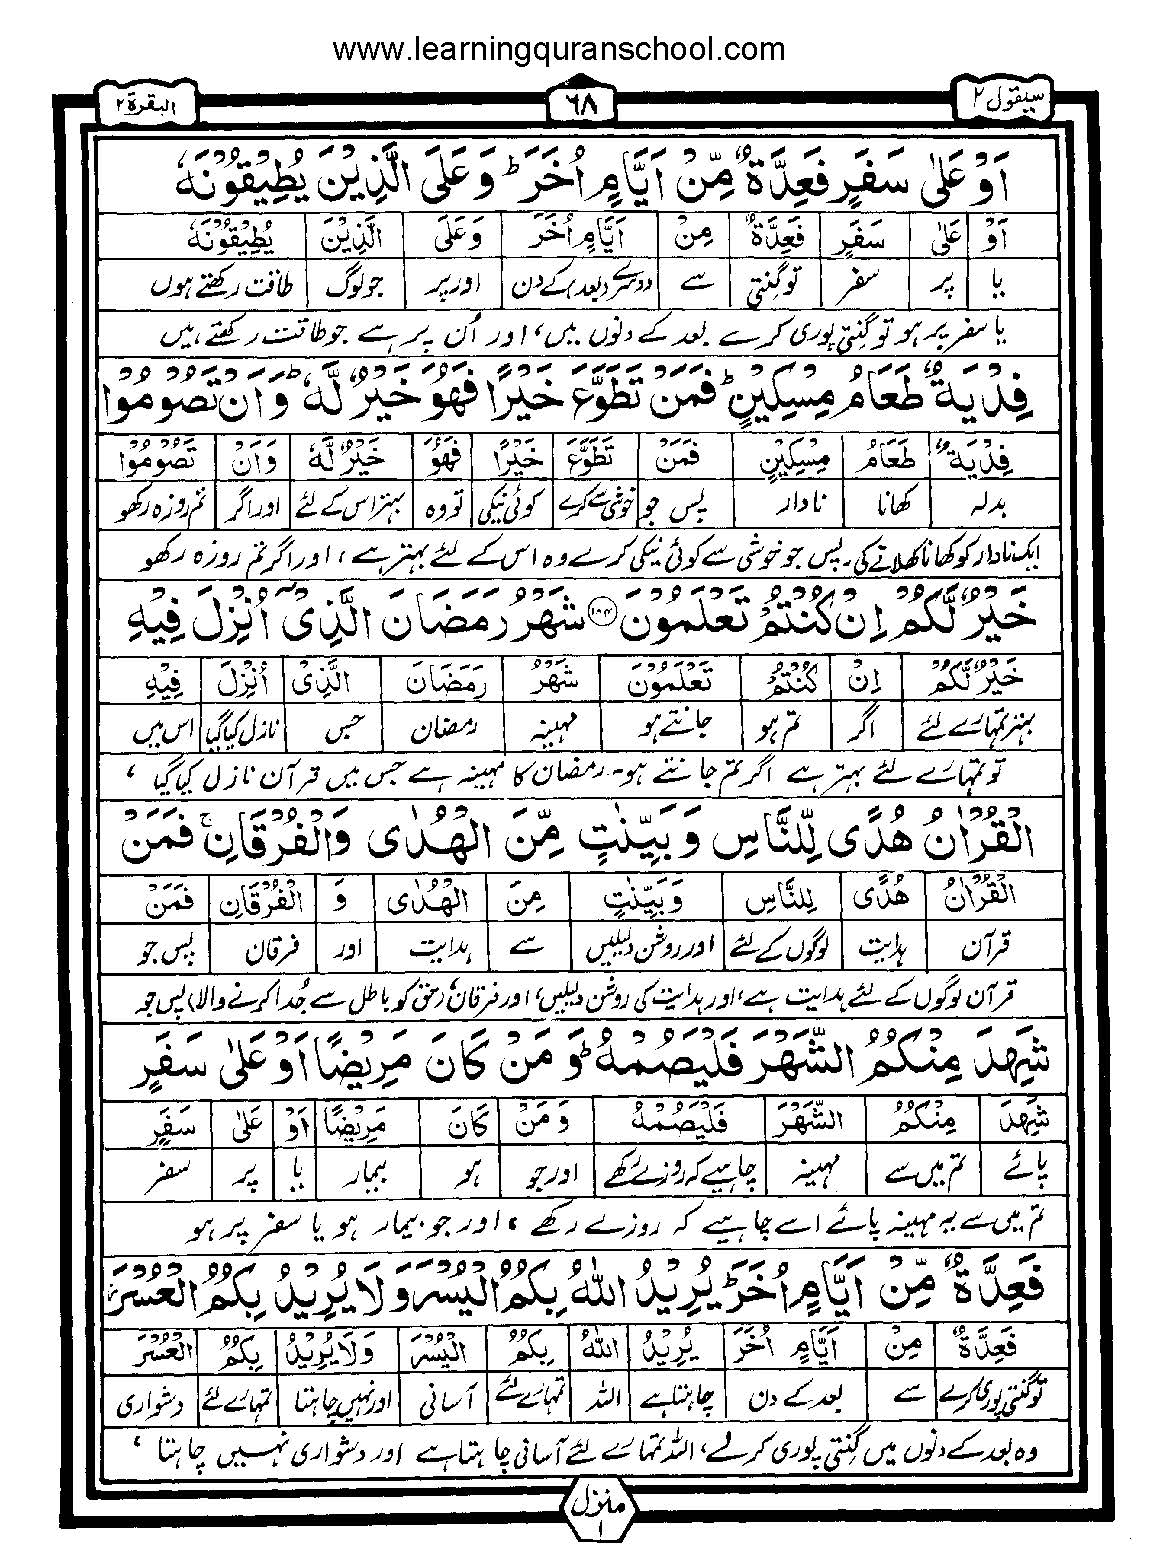 www.learningquranschool.com
سیقول ۲
٦٨
البقرة ۲
اَوْ عَلٰى سَفَرٍ فَعِدَّةٌ مِّنْ اَيَّامٍ اُخَرَ ؕ وَعَلَى الَّذِيْنَ يُطِيْقُوْنَهٗ
اَوْ عَلٰى سَفَرٍ فَعِدَّةٌ مِنْ اَيَّامٍ اُخَرَ وَعَلَى الَّذِيْنَ يُطِيْقُوْنَهٗ
یا پر سفر تو گنتی سے دوسرے (بعد) کے دن اور پر جو لوگ طاقت رکھتے ہوں
یا سفر پر ہو تو گنتی پوری کرے بعد کے دنوں میں، اور اُن پر ہے جو طاقت رکھتے ہیں
فِدْيَةٌ طَعَامُ مِسْكِيْنٍ ؕ فَمَنْ تَطَوَّعَ خَيْرًا فَهُوَ خَيْرٌ لَّهٗ ؕ وَاَنْ تَصُوْمُوْا
فِدْيَةٌ طَعَامُ مِسْكِيْنٍ فَمَنْ تَطَوَّعَ خَيْرًا فَهُوَ خَيْرٌ لَّهٗ وَاَنْ تَصُوْمُوْا
بدلہ کھانا نادار پس جو خوشی سے کرے کوئی نیکی تو وہ بہتر اس کے لئے اور اگر تم روزہ رکھو
ایک نادار کو کھانا کھلانے کی۔ پس جو خوشی سے کوئی نیکی کرے وہ اس کے لئے بہتر ہے، اور اگر تم روزہ رکھو
خَيْرٌ لَّكُمْ اِنْ كُنْتُمْ تَعْلَمُوْنَ ۱۸۴ شَهْرُ رَمَضَانَ الَّذِيْٓ اُنْزِلَ فِيْهِ
خَيْرٌ لَّكُمْ اِنْ كُنْتُمْ تَعْلَمُوْنَ شَهْرُ رَمَضَانَ الَّذِيْ اُنْزِلَ فِيْهِ
بہتر تمہارے لئے اگر تم ہو جانتے ہو مہینہ رمضان جس نازل کیا گیا اس میں
تو تمہارے لئے بہتر ہے اگر تم جانتے ہو۔ رمضان کا مہینہ ہے جس میں قرآن نازل کیا گیا،
الْقُرْاٰنُ هُدًى لِّلنَّاسِ وَبَيِّنٰتٍ مِّنَ الْهُدٰى وَالْفُرْقَانِ ۚ فَمَنْ
الْقُرْاٰنُ هُدًى لِلنَّاسِ وَبَيِّنٰتٍ مِنَ الْهُدٰى وَ الْفُرْقَانِ فَمَنْ
قرآن ہدایت لوگوں کے لئے اور روشن دلیلیں سے ہدایت اور فرقان پس جو
قرآن لوگوں کے لئے ہدایت ہے، اور ہدایت کی روشن دلیلیں، اور فرقان (حق کو باطل سے جُدا کرنے والا) پس جو
شَهِدَ مِنْكُمُ الشَّهْرَ فَلْيَصُمْهُ ؕ وَمَنْ كَانَ مَرِيْضًا اَوْ عَلٰى سَفَرٍ
شَهِدَ مِنْكُمُ الشَّهْرَ فَلْيَصُمْهُ وَمَنْ كَانَ مَرِيْضًا اَوْ عَلٰى سَفَرٍ
پائے تم میں سے مہینہ چاہیے کہ روزے رکھے اور جو ہو بیمار یا پر سفر
تم میں سے یہ مہینہ پائے اسے چاہیے کہ روزے رکھے، اور جو بیمار ہو یا سفر پر ہو
فَعِدَّةٌ مِّنْ اَيَّامٍ اُخَرَ ؕ يُرِيْدُ اللّٰهُ بِكُمُ الْيُسْرَ وَلَا يُرِيْدُ بِكُمُ الْعُسْرَ
فَعِدَّةٌ مِنْ اَيَّامٍ اُخَرَ يُرِيْدُ اللّٰهُ بِكُمُ الْيُسْرَ وَلَا يُرِيْدُ بِكُمُ الْعُسْرَ
تو گنتی پوری کرے سے بعد کے دن چاہتا ہے اللہ تمہارے لئے آسانی اور نہیں چاہتا تمہارے لئے دشواری
وہ بعد کے دنوں میں گنتی پوری کرلے، اللہ تمہارے لئے آسانی چاہتا ہے اور دشواری نہیں چاہتا،
منزل
۱